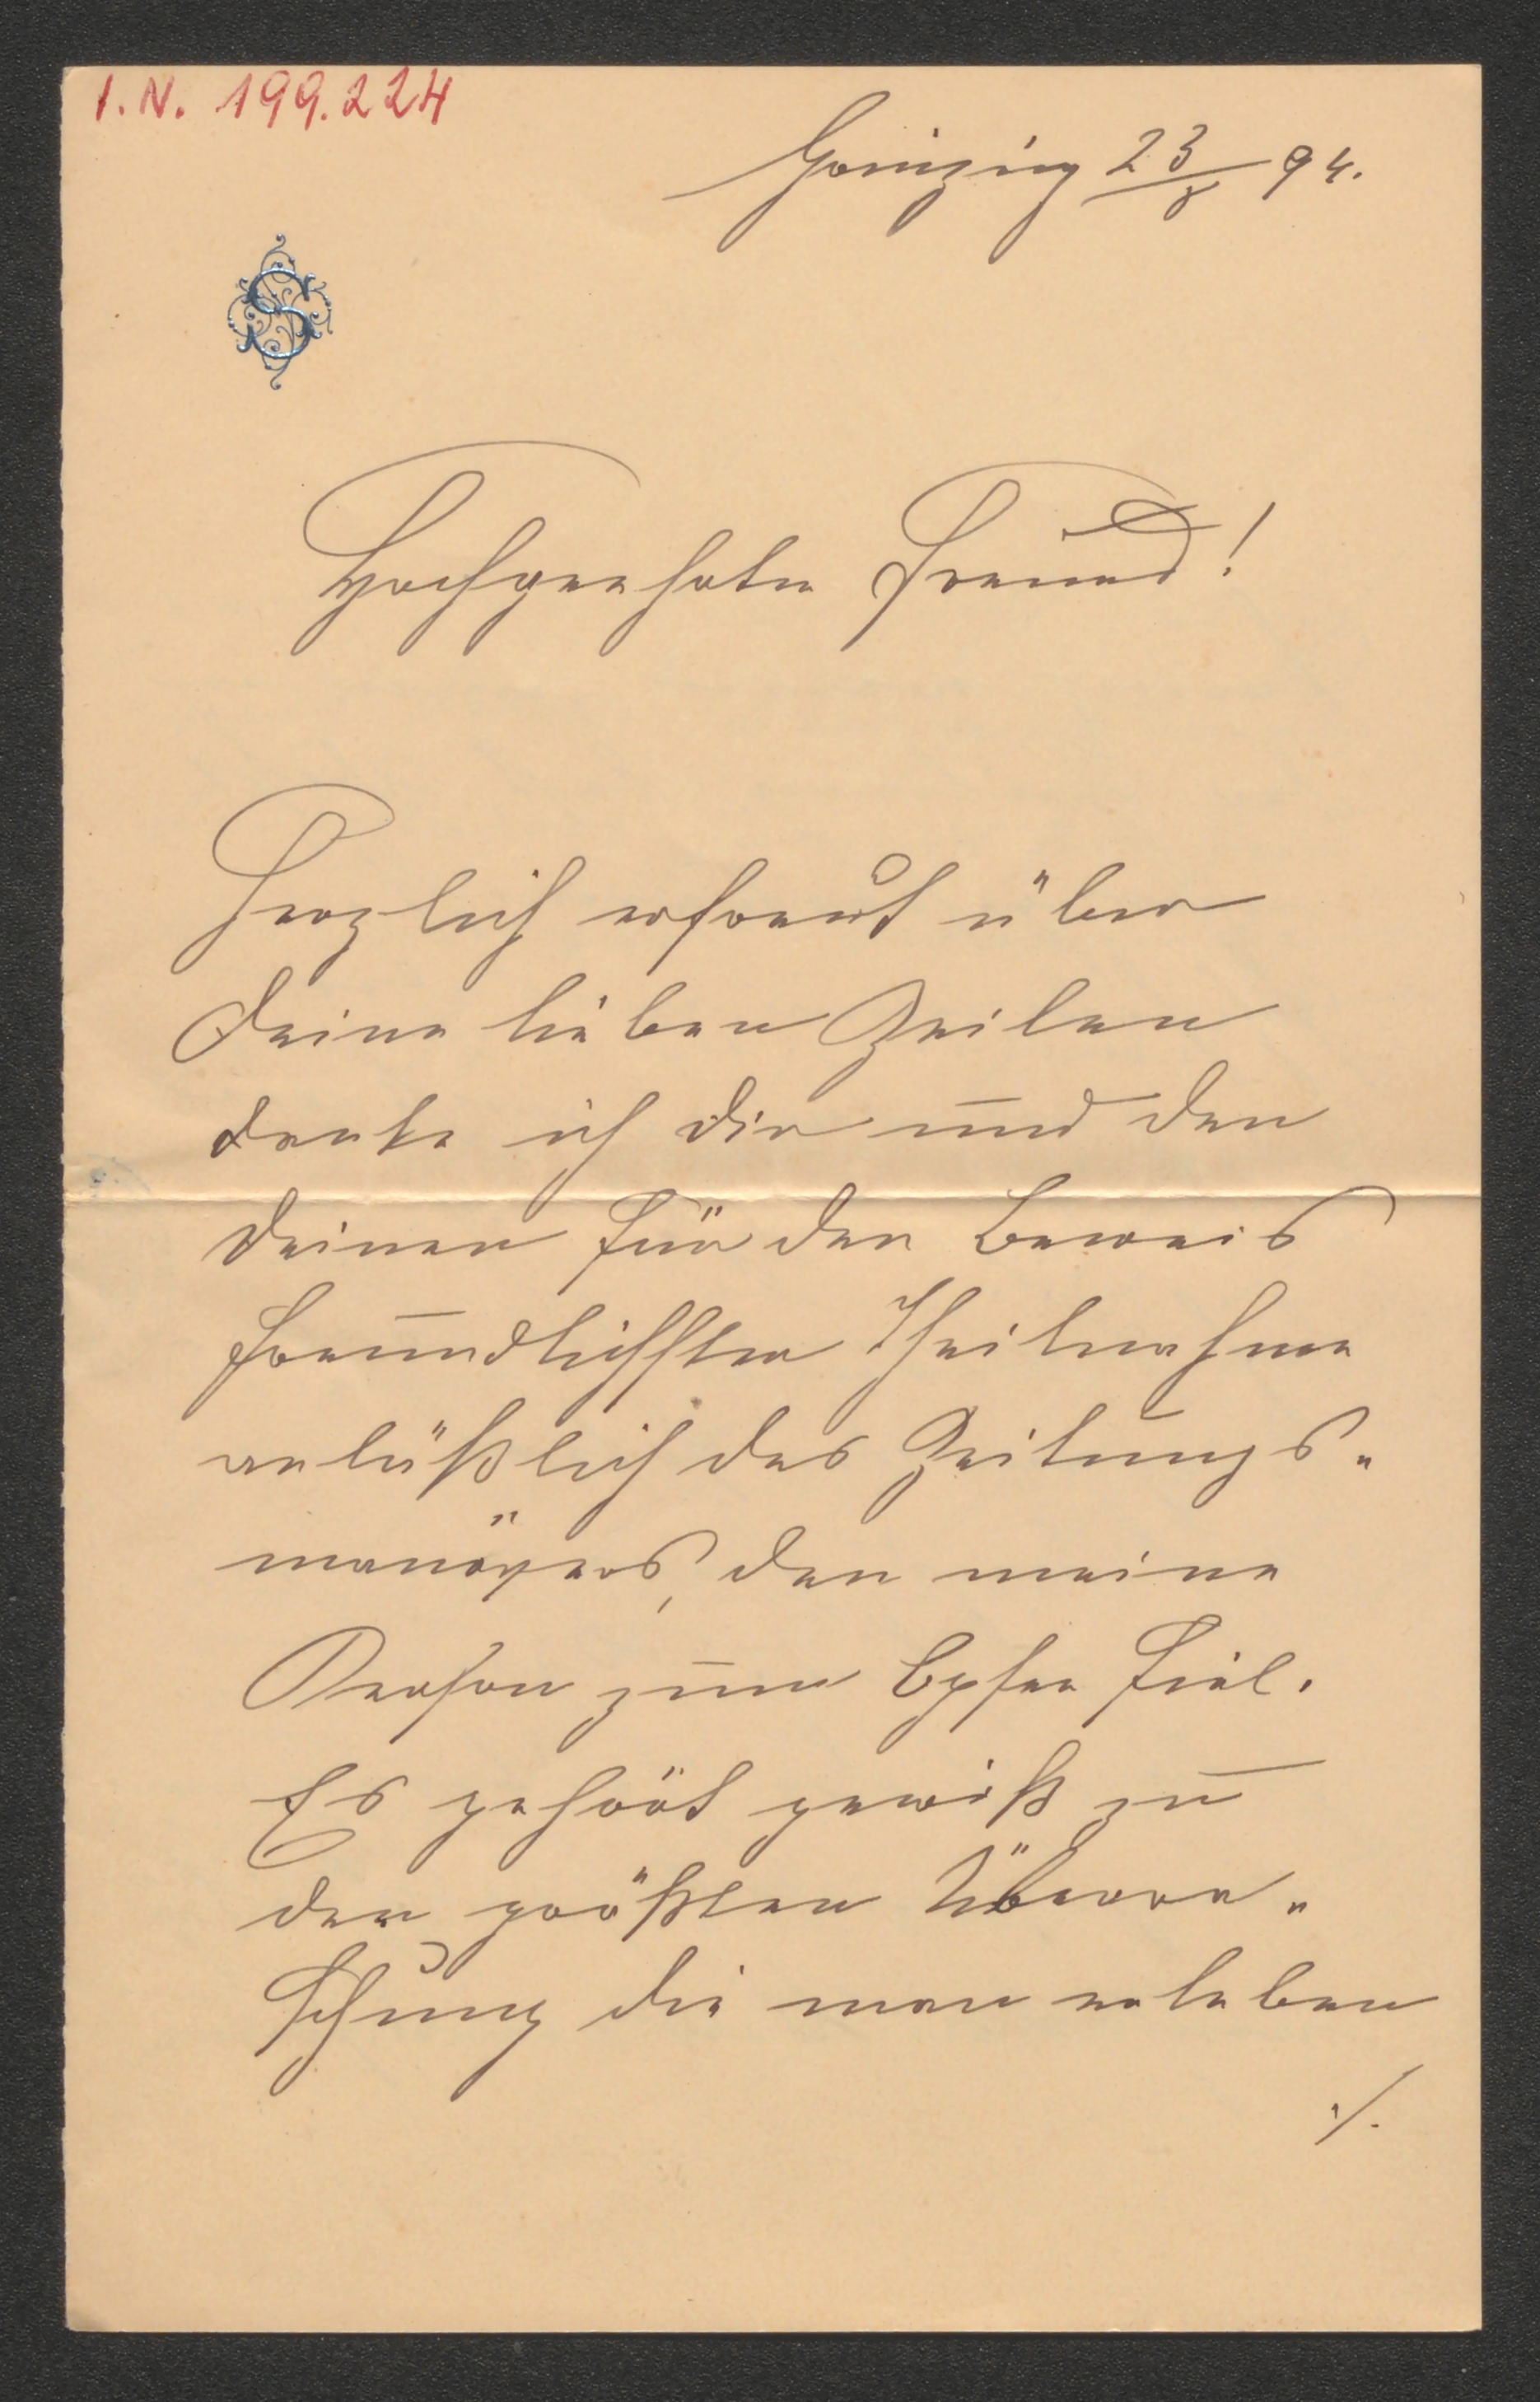 I. N. 199.224
Grinzing 23/8 94.
S
Hochgeehrter Freund!
Herzlich erfreut über
Deine lieben Zeilen
danke ich Dir und den
Deinen für den Beweis
freundlichster Theilnahme
anläßlich des Zeitungs-
manövers, dem meine
Person zum Opfer fiel.
Es gehört gewiß zu
den größten Überra-
schung die man erleben
./.